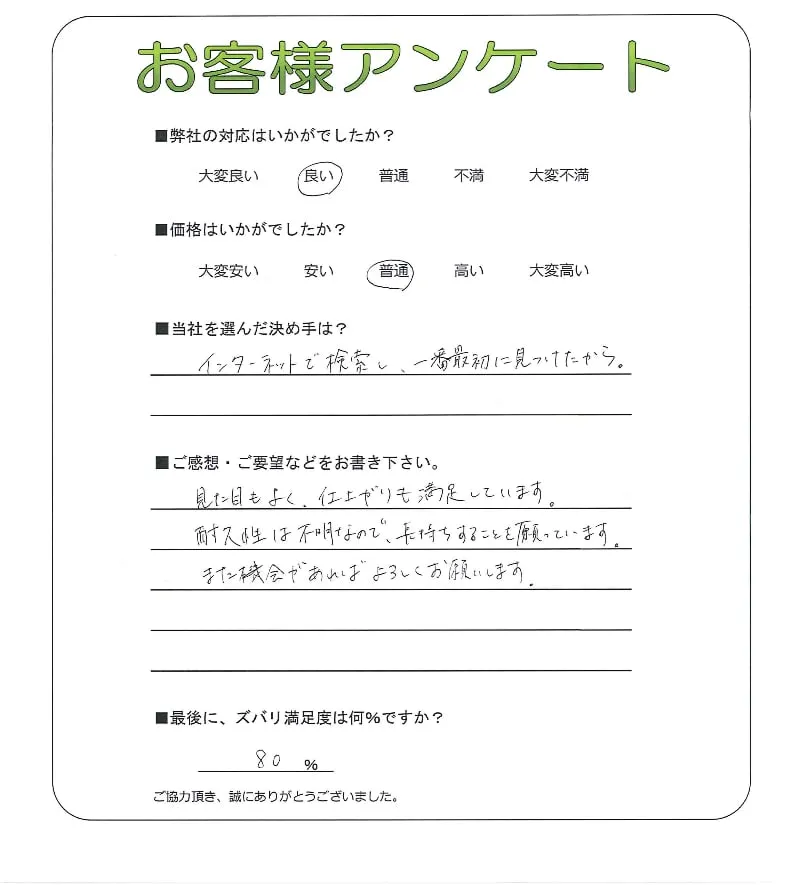 お客様アンケート
■弊社の対応はいかがでしたか？
大変良い 良い 普通 不満 大変不満
■価格はいかがでしたか？
大変安い 安い 普通 高い 大変高い
■当社を選んだ決め手は？
インターネットで検索し、一番最初に見つけたから。
■ご感想・ご要望などをお書き下さい。
見た目もよく、仕上がりも満足しています。
耐久性は不明なので、長持ちすることを願っています。
また機会があればよろしくお願いします。
■最後に、ズバリ満足度は何%ですか？
80 %
ご協力頂き、誠にありがとうございました。